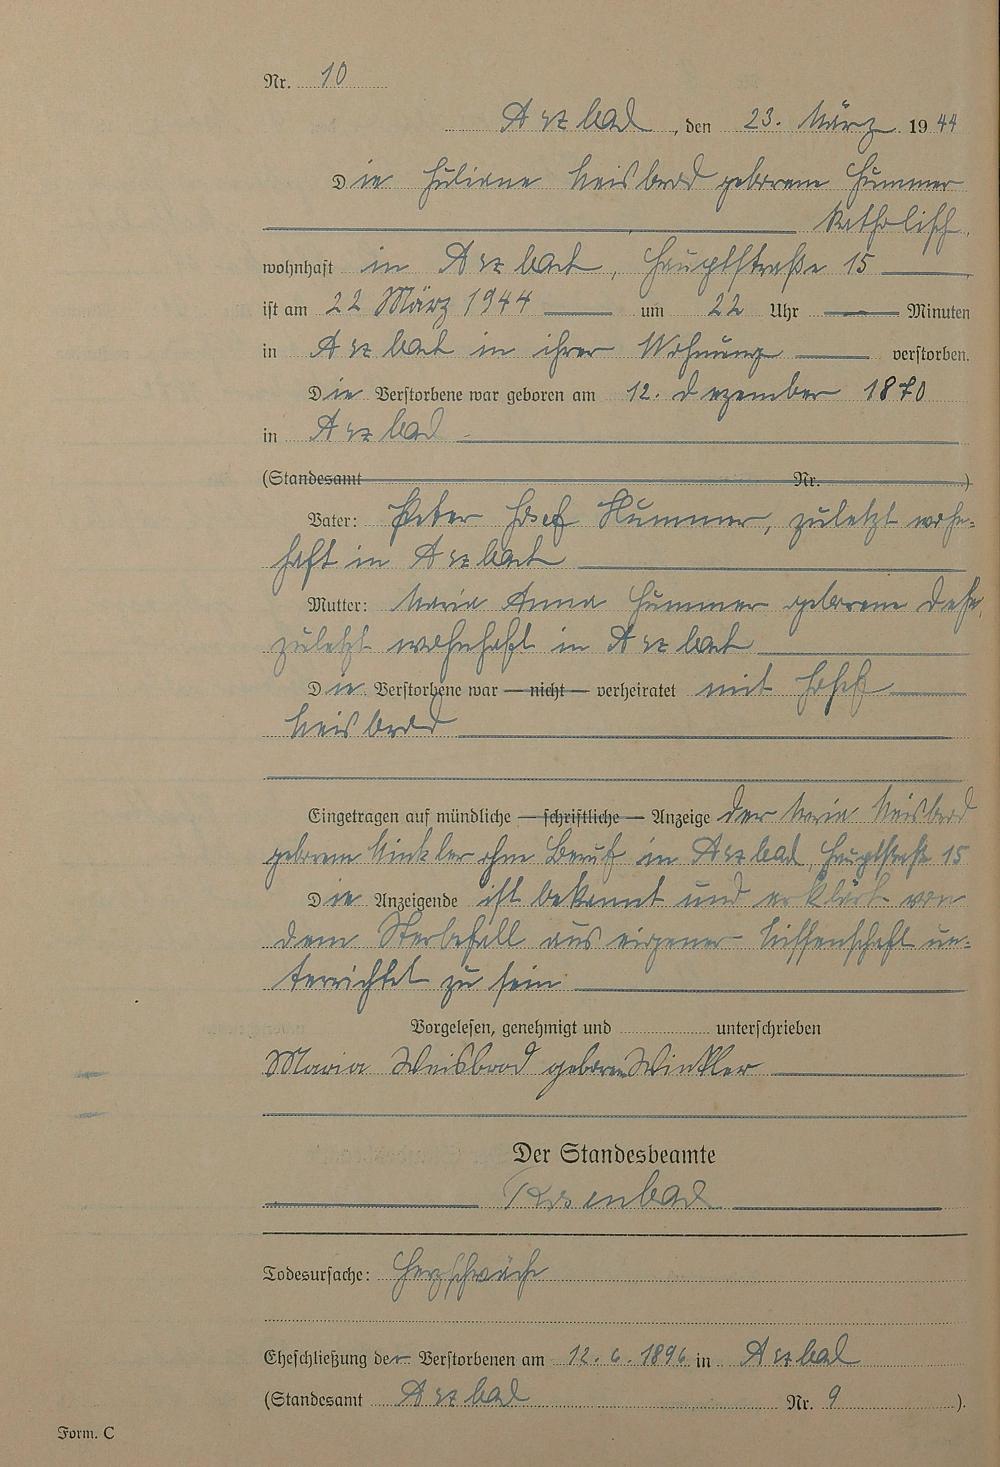 Nr. 10
Arzbach, den 23. März 1944
Die Juliane Weisbrod geborene Hummer
katholisch,
wohnhaft in Arzbach, Hauptstraße 15
ist am 22 März 1944 um 22 Uhr Minuten
in Arzbach in ihrer Wohnung verstorben.
Die Verstorbene war geboren am 12. Dezember 1870
in Arzbach
(Standesamt Nr. )
Vater: Peter Josef Hummer, zuletzt wohn-
haft in Arzbach
Mutter: Maria Anna Hummer geborene
zuletzt wohnhaft in Arzbach
Die Verstorbene war — nicht — verheiratet mit Josef
Weisbrod
Eingetragen auf mündliche — schriftliche — Anzeige der Maria Weisbrod
geborene Winkler ohne Beruf in Arzbach, Hauptstraße 15
Die Anzeigende ist bekannt und erklärt von
dem Sterbefall aus eigener Wissenschaft un-
terrichtet zu sein
Vorgelesen, genehmigt und unterschrieben
Maria Weisbrod geborene Winkler
Der Standesbeamte
Todesursache: Herzschwäche
Eheschließung der Verstorbenen am 12.6.1896 in Arzbach
(Standesamt Arzbach Nr. 9 ).
Form. C